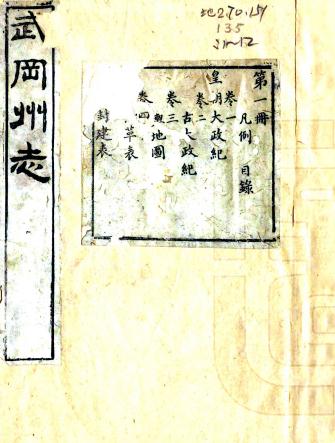 地270.151
135
21-12
武岡州志
第一冊
凡例 目錄
卷一
皇明大政紀
卷二
古今大政紀
卷三
地圖
卷四
表
封建表